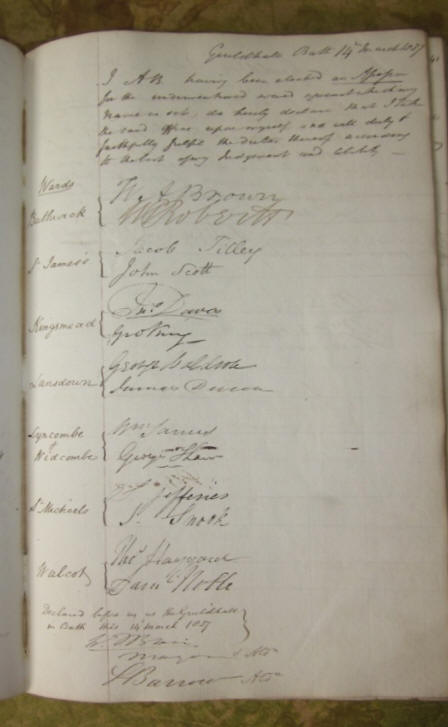 Guildhall Bath 14 March 1837
I AB having been elected an Assessor
for the undermentioned ward against which my
name is set, do hereby declare that I take
the said office upon myself and will duly &
faithfully fulfil the duties thereof according
to the best of my Judgement and Ability
Wards
W. A Brown
Bathwick
W Roberts
Jacob Tilley
St James's
John Scott
Kingsmead
Geo King
George
Lansdown
James
Lyncombe
Wm James
&
Widcombe
George Shaw
Jefferies
St Michaels
J. Snook
Thos
Walcot
Danl Noble
Declared before us at the Guildhall
in Bath this 14 March 1837
Mayor
Barrow